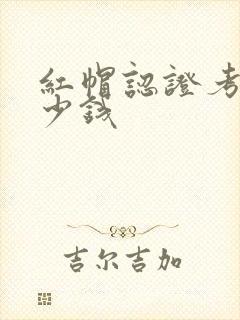 紅帽認證考
少錢
吉尔吉加